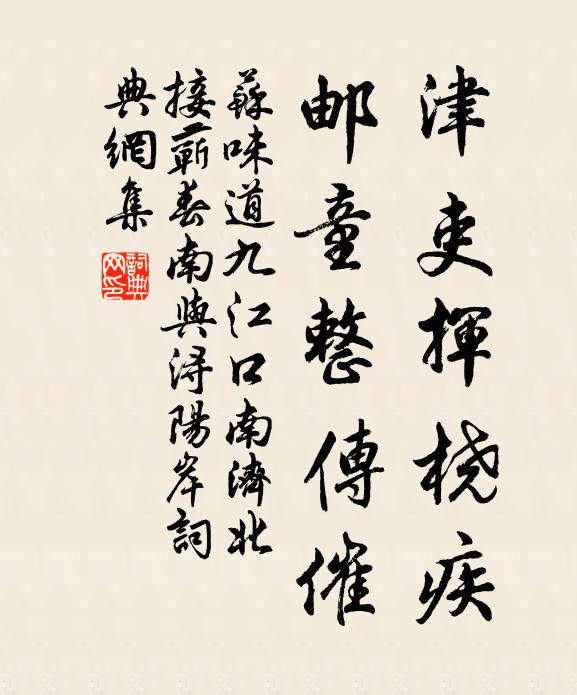 津吏揮桡疾
邮童整傳催
蘇味道九江口南濟北
接蘄春南與潯陽岸詞
典網集
詞典网印